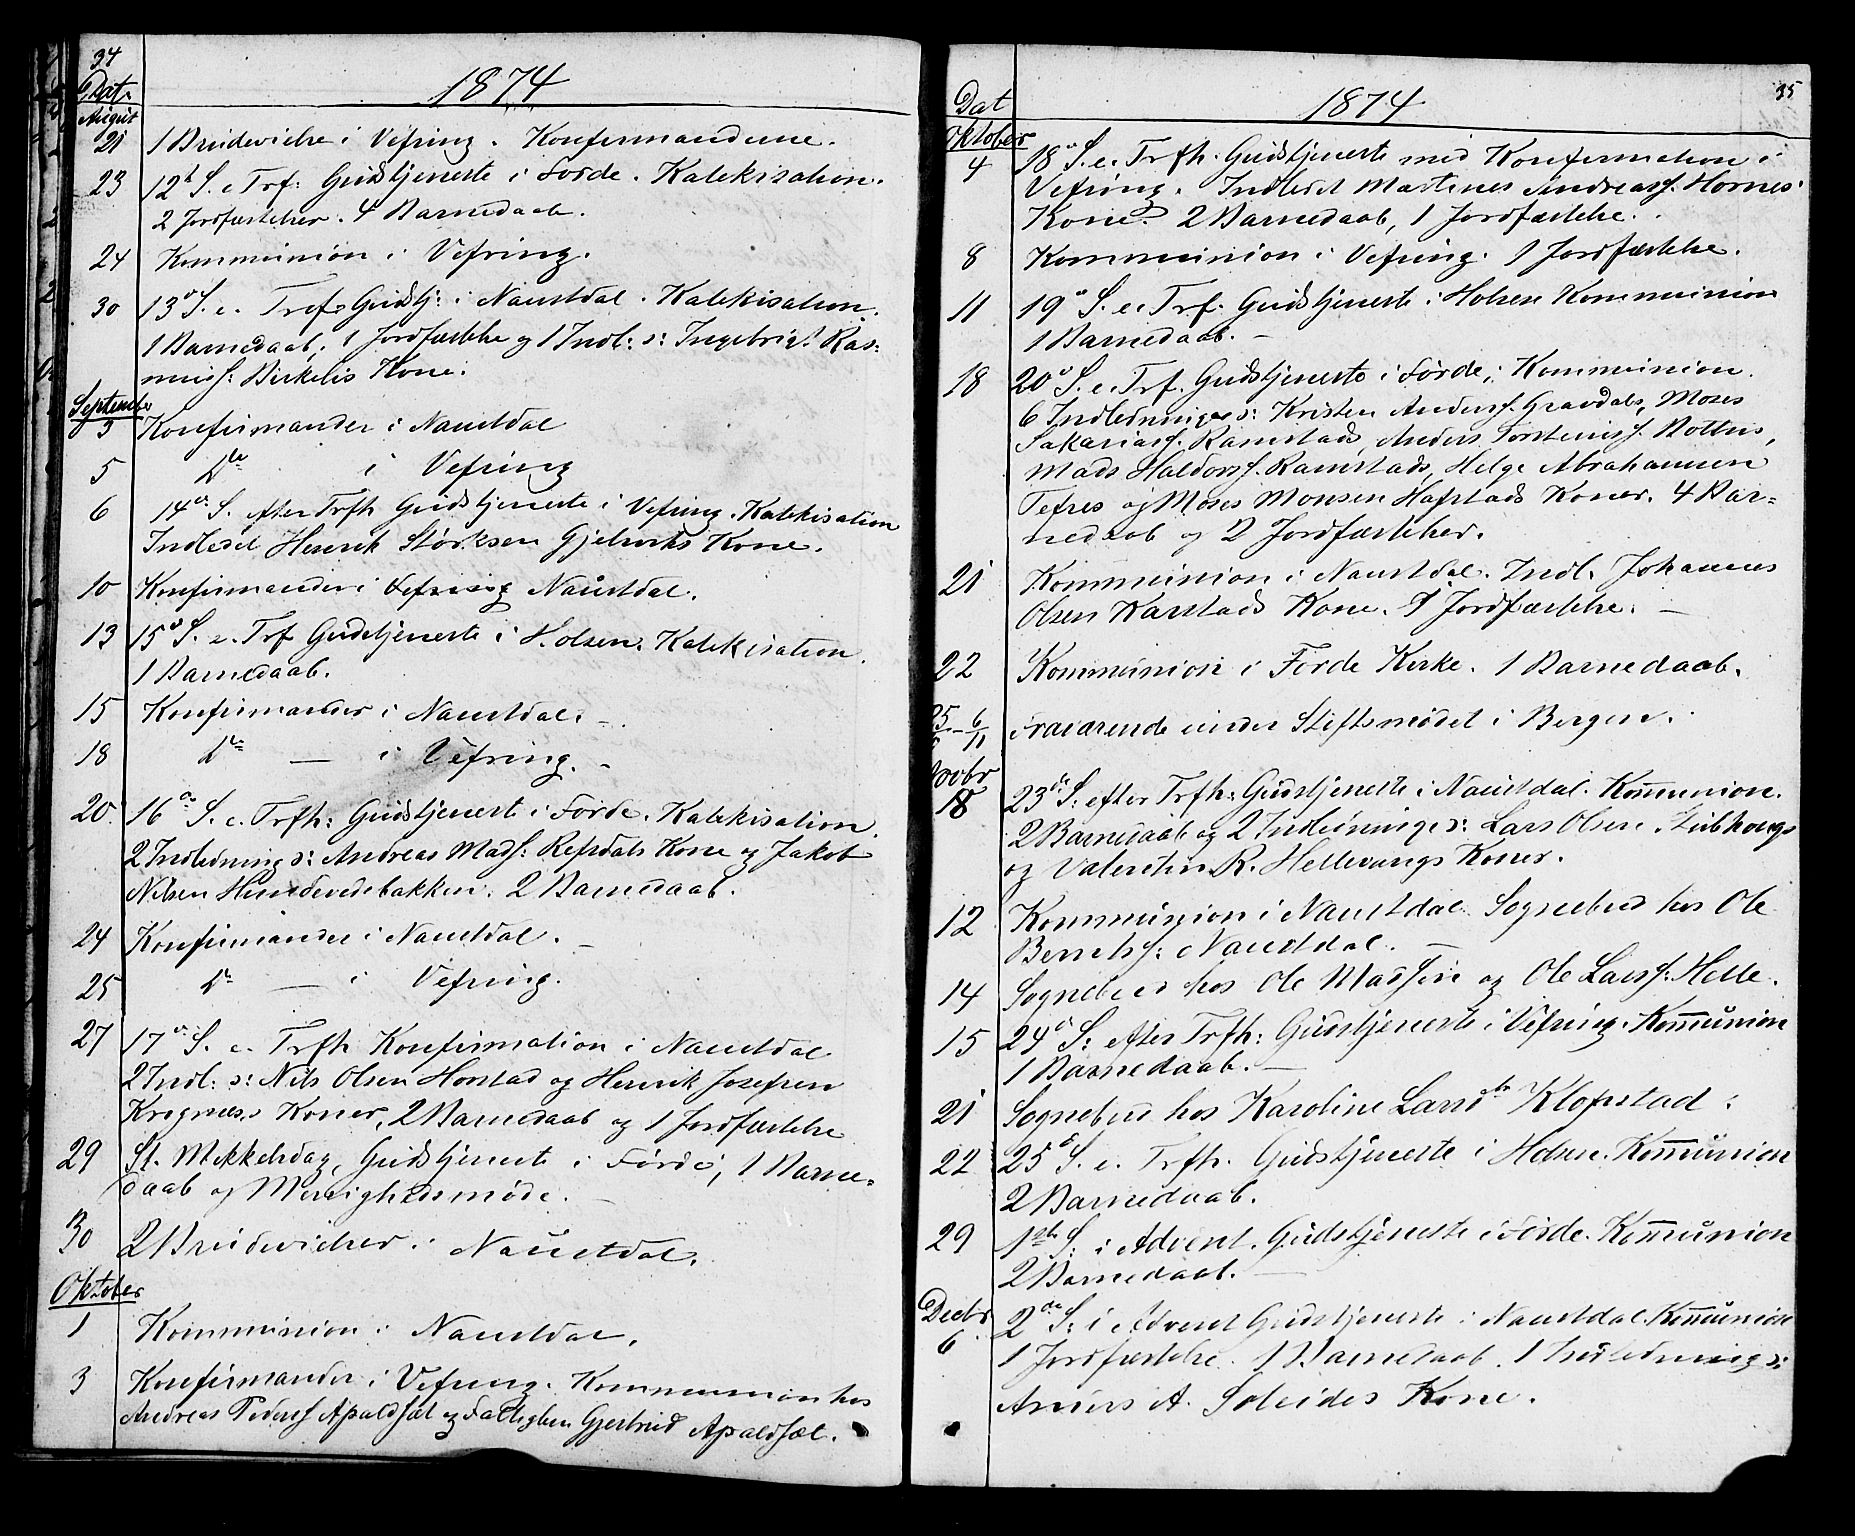 34
Dat.
1874
August
21 1 Brudevielse i Vefring. Konfirmanderne.
23 12te S. e Trf: Gudstjeneste i Førde. Katekisation.
2 Jordfæstelser. 4 Barnedaab.
24 Kommunion i Vefring.
30 13e S. e. Tref. Gudstj: i Naustdal. Katekisation.
1 Barnedaab, 1 Jordfæstelse og 1 Indl: s: Ingebrigt Ras-
muss: Birkelis Kone.
September
3 Konfirmander i Naustdal
5 Do i Vefring
6 14de S. efter Trfh Gudstjeneste i Vefring. Katekisation
Indledet Henrik Størksen Gjelsviks Kone.
10 Konfirmander i Vefring Naustdal.
13 15e S. e. Trf Gudstjeneste i Holsen. Katekisation.
1 Barnedaab.
15 Konfirmander i Naustdal. –
18 Do — i Vefring. –
20 16de S. e. Trfh: Gudstjeneste i Førde. Katekisation.
2 Indledning s: Andreas Mads: Refsdals Kone og Jakob
Nilsen Hundevedebakken. 2 Barnedaab.
24 Konfirmander i Naustdal. –
25 Do — i Vefring.
27 17de S. e. Trfh Konfirmation i Naustdal
2 Indl: s: Nils Olsen Horstad og Henrik Josefsen
Krognæss Koner, 2 Barnedaab og 1 Jordfæstelse
29 St. Mikkelsdag, Gudstjeneste i Førde, 1 Barne-
daab og Menighedsmøde. –
30 2 Brudevielser i Naustdal.
Oktober
1 Kommunion i Naustdal.
3 Konfirmander i Vefring. Kommunion hos
Andreas Peders Apaldsæt og Fattiglem Gjertrud Apaldsæt.
35
Dat
1874
Oktober
4 18e S. e. Trfh. Gudstjeneste med Konfirmation i
Vefring. Indledet Martines Andreass. Hornes
Kone. 2 Barnedaab, 1 Jordfæstelse.
8 Kommunion i Vefring. 1 Jordfæstelse.
11 19e S. e. Trf. Gudstjeneste i Holsen Kommunion
1 Barnedaab. –
18 20e S. e. Trf. Gudstjeneste i Førde, Kommunion.
6 Indledninger s: Kristen Anderss. Gravdals, Moses
Sakariass. Ramstads, Anders Torsteinss. Bottns,
Mads Haldorss. Ramstads, Helge Abrahamsen
Tefres og Moses Monsen Hafstads Koner. 4 Bar-
nedaab og 2 Jordfæstelser.
21 Kommunion i Naustdal. Indl. Johannes
Olsen Karstads Kone. 1 Jordfæstelse. –
22 Kommunion i Førde Kirke. 1 Barnedaab.
25 – 6/11 Fraværende under Stiftsmødet i Bergen.
Novbr
18 23de S: efter Trfh: Gudstjeneste i Naustdal. Kommunion.
2 Barnedaab og 2 Indledninge s: Lars Olsen
og Valentin R. Hellevangs Koner.
12 Kommunion i Naustdal Sognebud hos Ole
Berents: Naustdal. –
14 Sognebud hos Ole Madssen og Ole Larss: Helle.
15 24e S: efter Trfh: Gudstjeneste i Vefring. Kommunion
1 Barnedaab. –
21 Sognebud hos Karoline Larsdtr Klopstad.
22 25e S. e. Trfh. Gudstjeneste i Holsen. Kommunion
2 Barnedaab.
29 1ste S: i Advent. Gudstjeneste i Førde. Kommunion
2 Barnedaab. –
Decbr
6 2de S: i Advent Gudstjeneste i Naustdal. Kommunion
1 Jordfæstelse. 1 Barnedaab. 1 Indledning s:
Anders A. Soleides Kone.